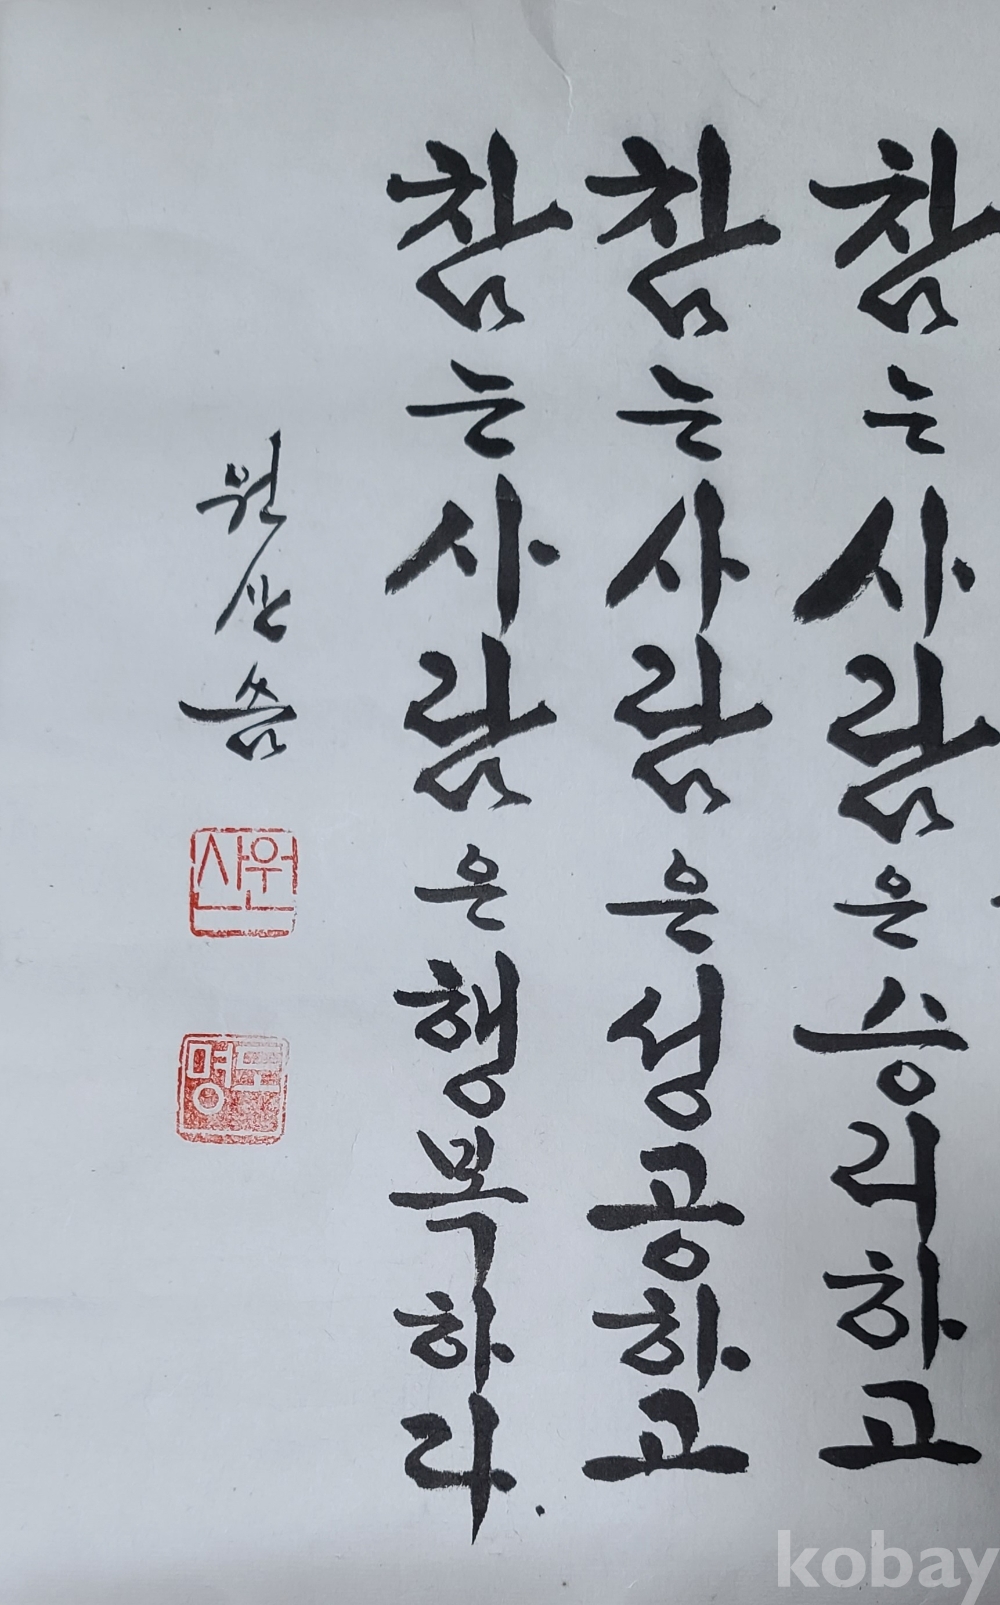 참는사람은승리하고
참는사람은성공하고
참는사람은행복하라
원산씀
원산
도명
kobay